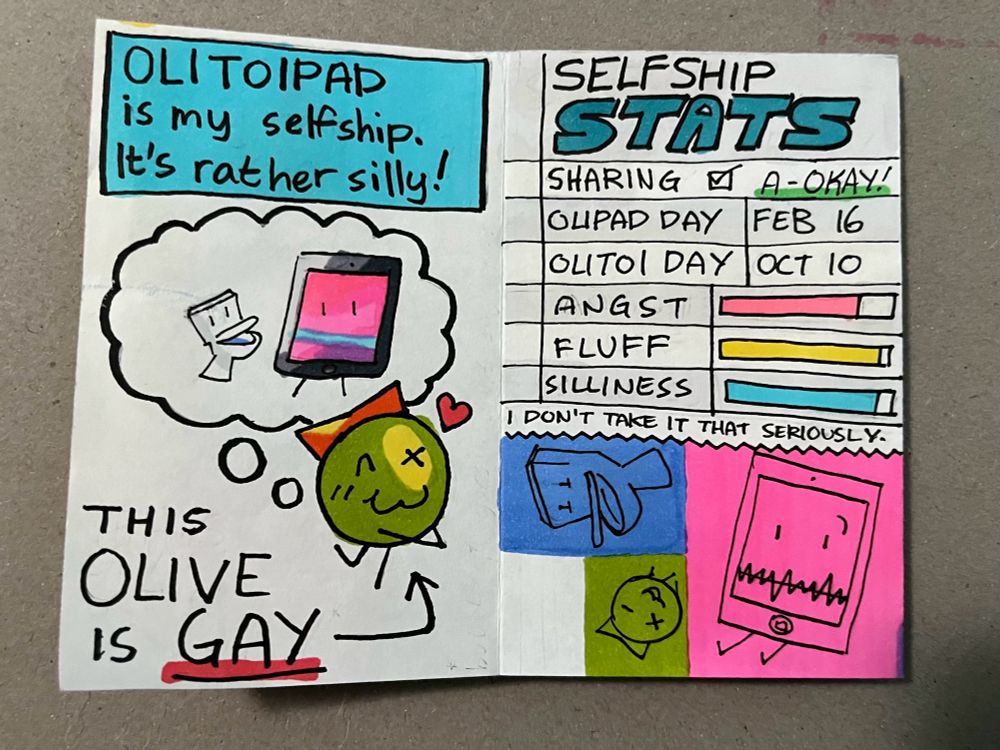 OLITOIPAD
is my selfship.
It's rather silly!
THIS
OLIVE
IS GAY
SELFSHIP
STATS
SHARING ☑ A-OKAY!
OLIPAD DAY FEB 16
OLITOI DAY OCT 10
ANGST
FLUFF
SILLINESS
I DON'T TAKE IT THAT SERIOUSLY.